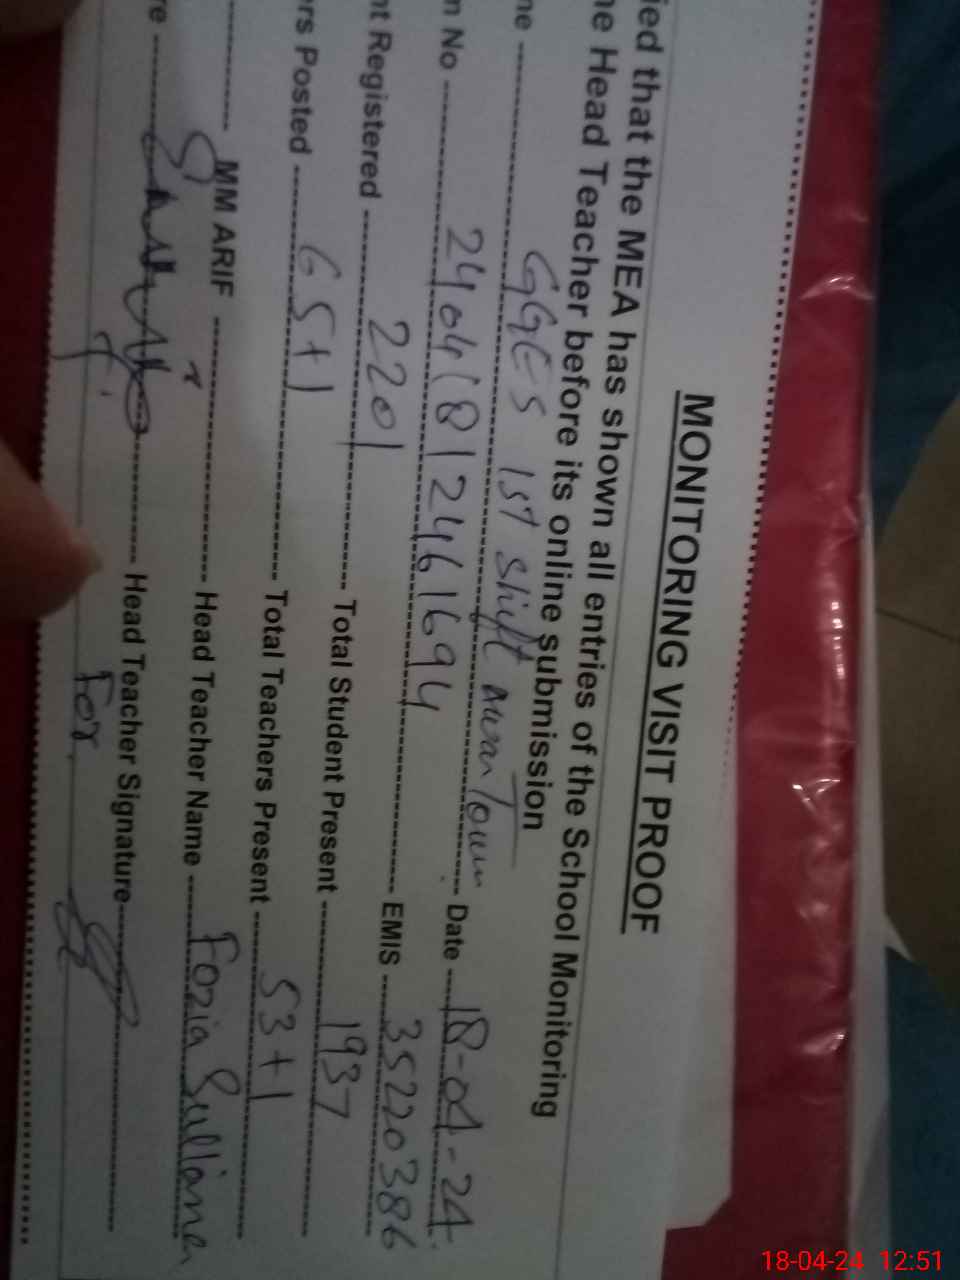 MONITORING VISIT PROOF
ied that the MEA has shown all entries of the School Monitoring
he Head Teacher before its online submission
ne GGES 1st shift awan Town Date 18-04-24
n No 24041812461694 EMIS 35220386
nt Registered 2201 Total Student Present 1937
rs Posted 65+1 Total Teachers Present 53+1
MM ARIF Head Teacher Name Fozia
re Head Teacher Signature
For
18-04-24 12:51